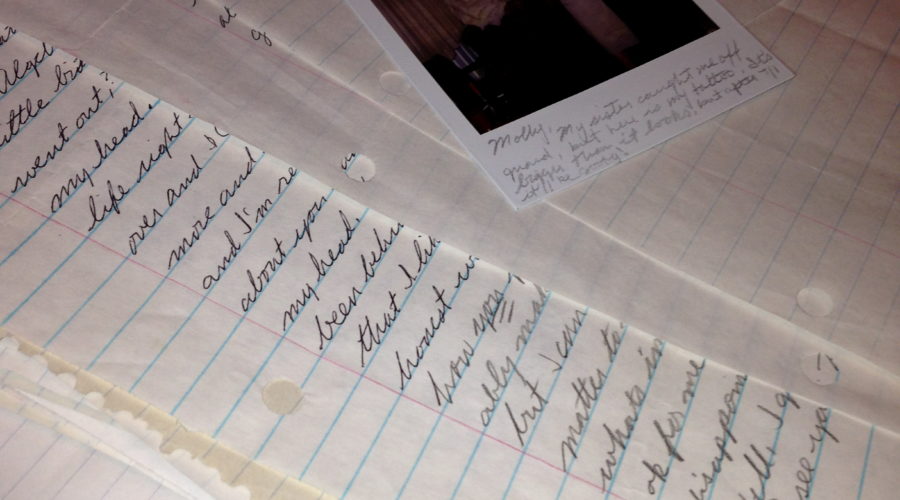 al
g
Alget
little bit
went out?
my head.
life right
over and I
more and
and I'm re
about you
my head.
been behin
that I lik
honest w
how you
ably ma
but I can
matter to
whats in
ok for me
disappoin
I g
see-ya
Molly, My sister caught me off
guard, but here is my tattoo. Its
bigger than it looks, but after all
it's a